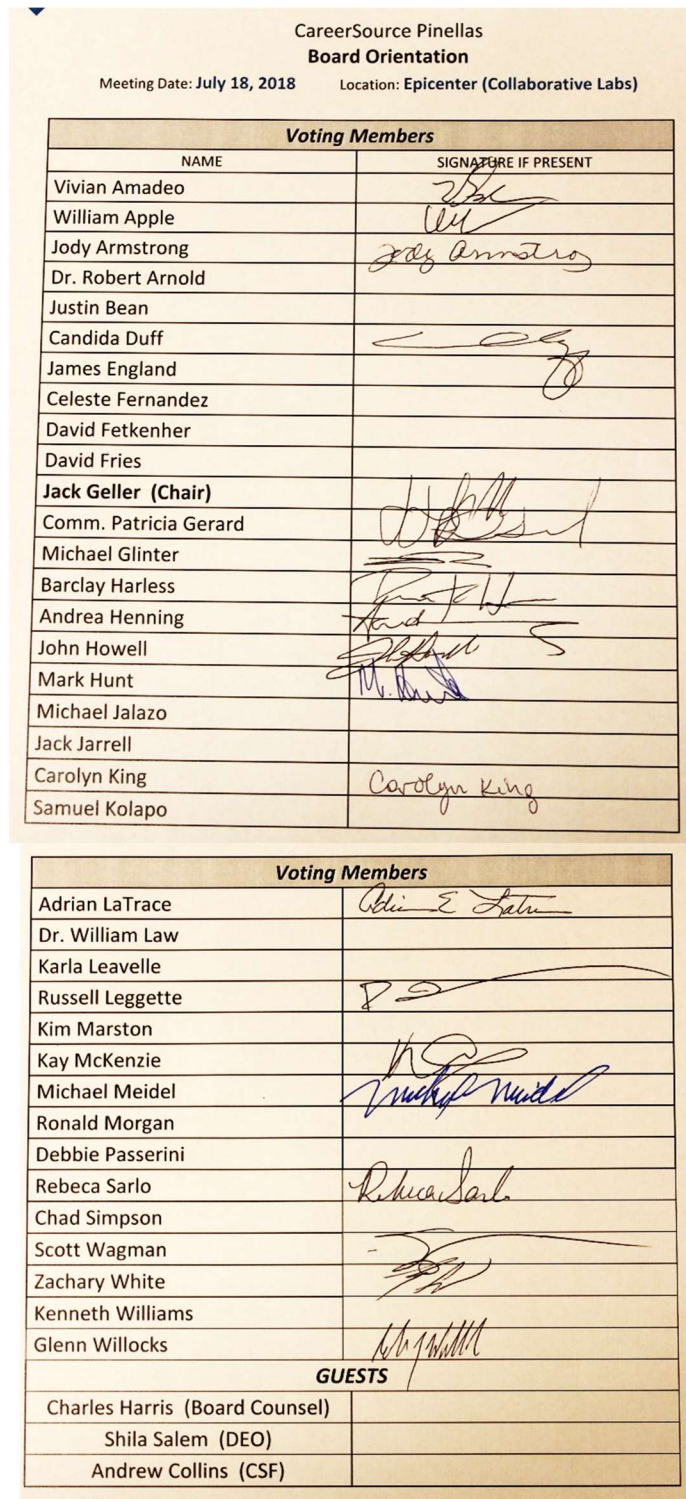 CareerSource Pinellas
Board Orientation
Meeting Date: July 18, 2018 Location: Epicenter (Collaborative Labs)
Voting Members
NAME SIGNATURE IF PRESENT
Vivian Amadeo
William Apple
Jody Armstrong Jody Armstrong
Dr. Robert Arnold
Justin Bean
Candida Duff
James England
Celeste Fernandez
David Fetkenher
David Fries
Jack Geller (Chair)
Comm. Patricia Gerard
Michael Glinter
Barclay Harless
Andrea Henning
John Howell
Mark Hunt M. Hunt
Michael Jalazo
Jack Jarrell
Carolyn King Carolyn King
Samuel Kolapo
Voting Members
Adrian LaTrace
Dr. William Law
Karla Leavelle
Russell Leggette
Kim Marston
Kay McKenzie
Michael Meidel Michael Meidel
Ronald Morgan
Debbie Passerini
Rebeca Sarlo Rebeca Sarlo
Chad Simpson
Scott Wagman
Zachary White
Kenneth Williams
Glenn Willocks
GUESTS
Charles Harris (Board Counsel)
Shila Salem (DEO)
Andrew Collins (CSF)